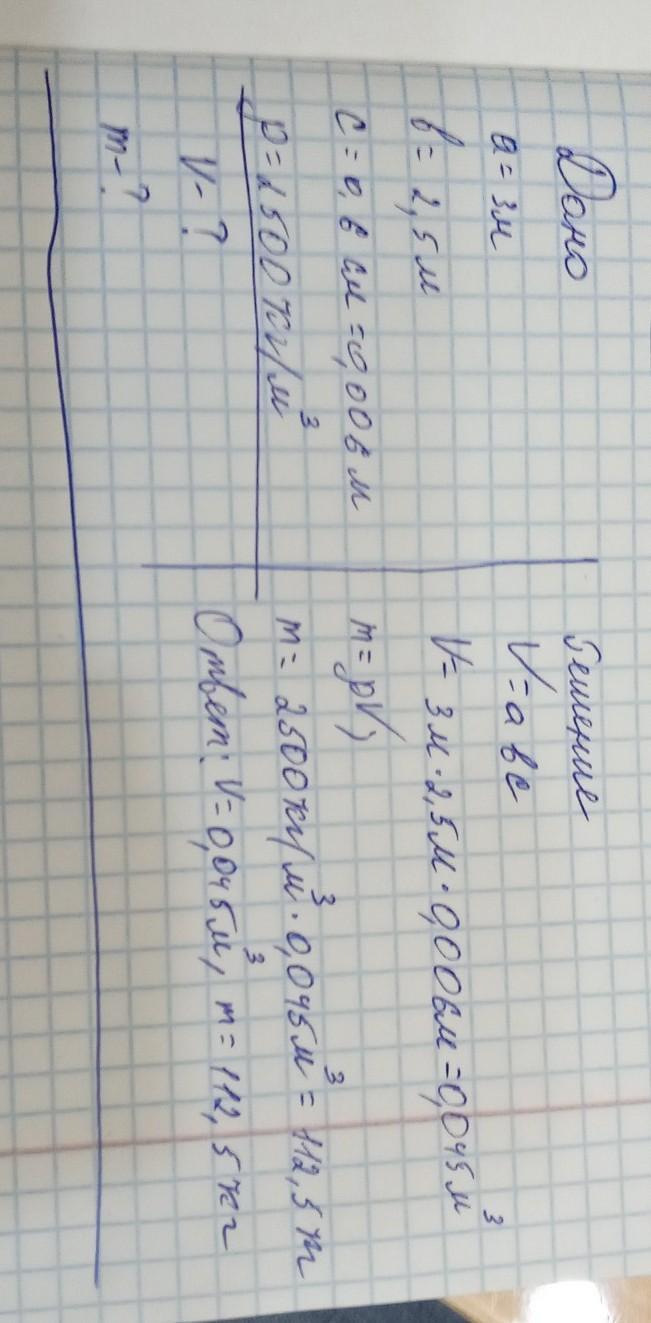 Дано
a = 3м
b = 2,5 м
c = 0,6 см = 0,006 м
ρ = 2500 кг/м³
V - ?
m - ?
Решение
V = a b c
V = 3 м · 2,5 м · 0,006 м = 0,045 м³
m = ρV;
m = 2500 кг/м³ · 0,045 м³ = 112,5 кг
Ответ: V = 0,045 м³, m = 112,5 кг